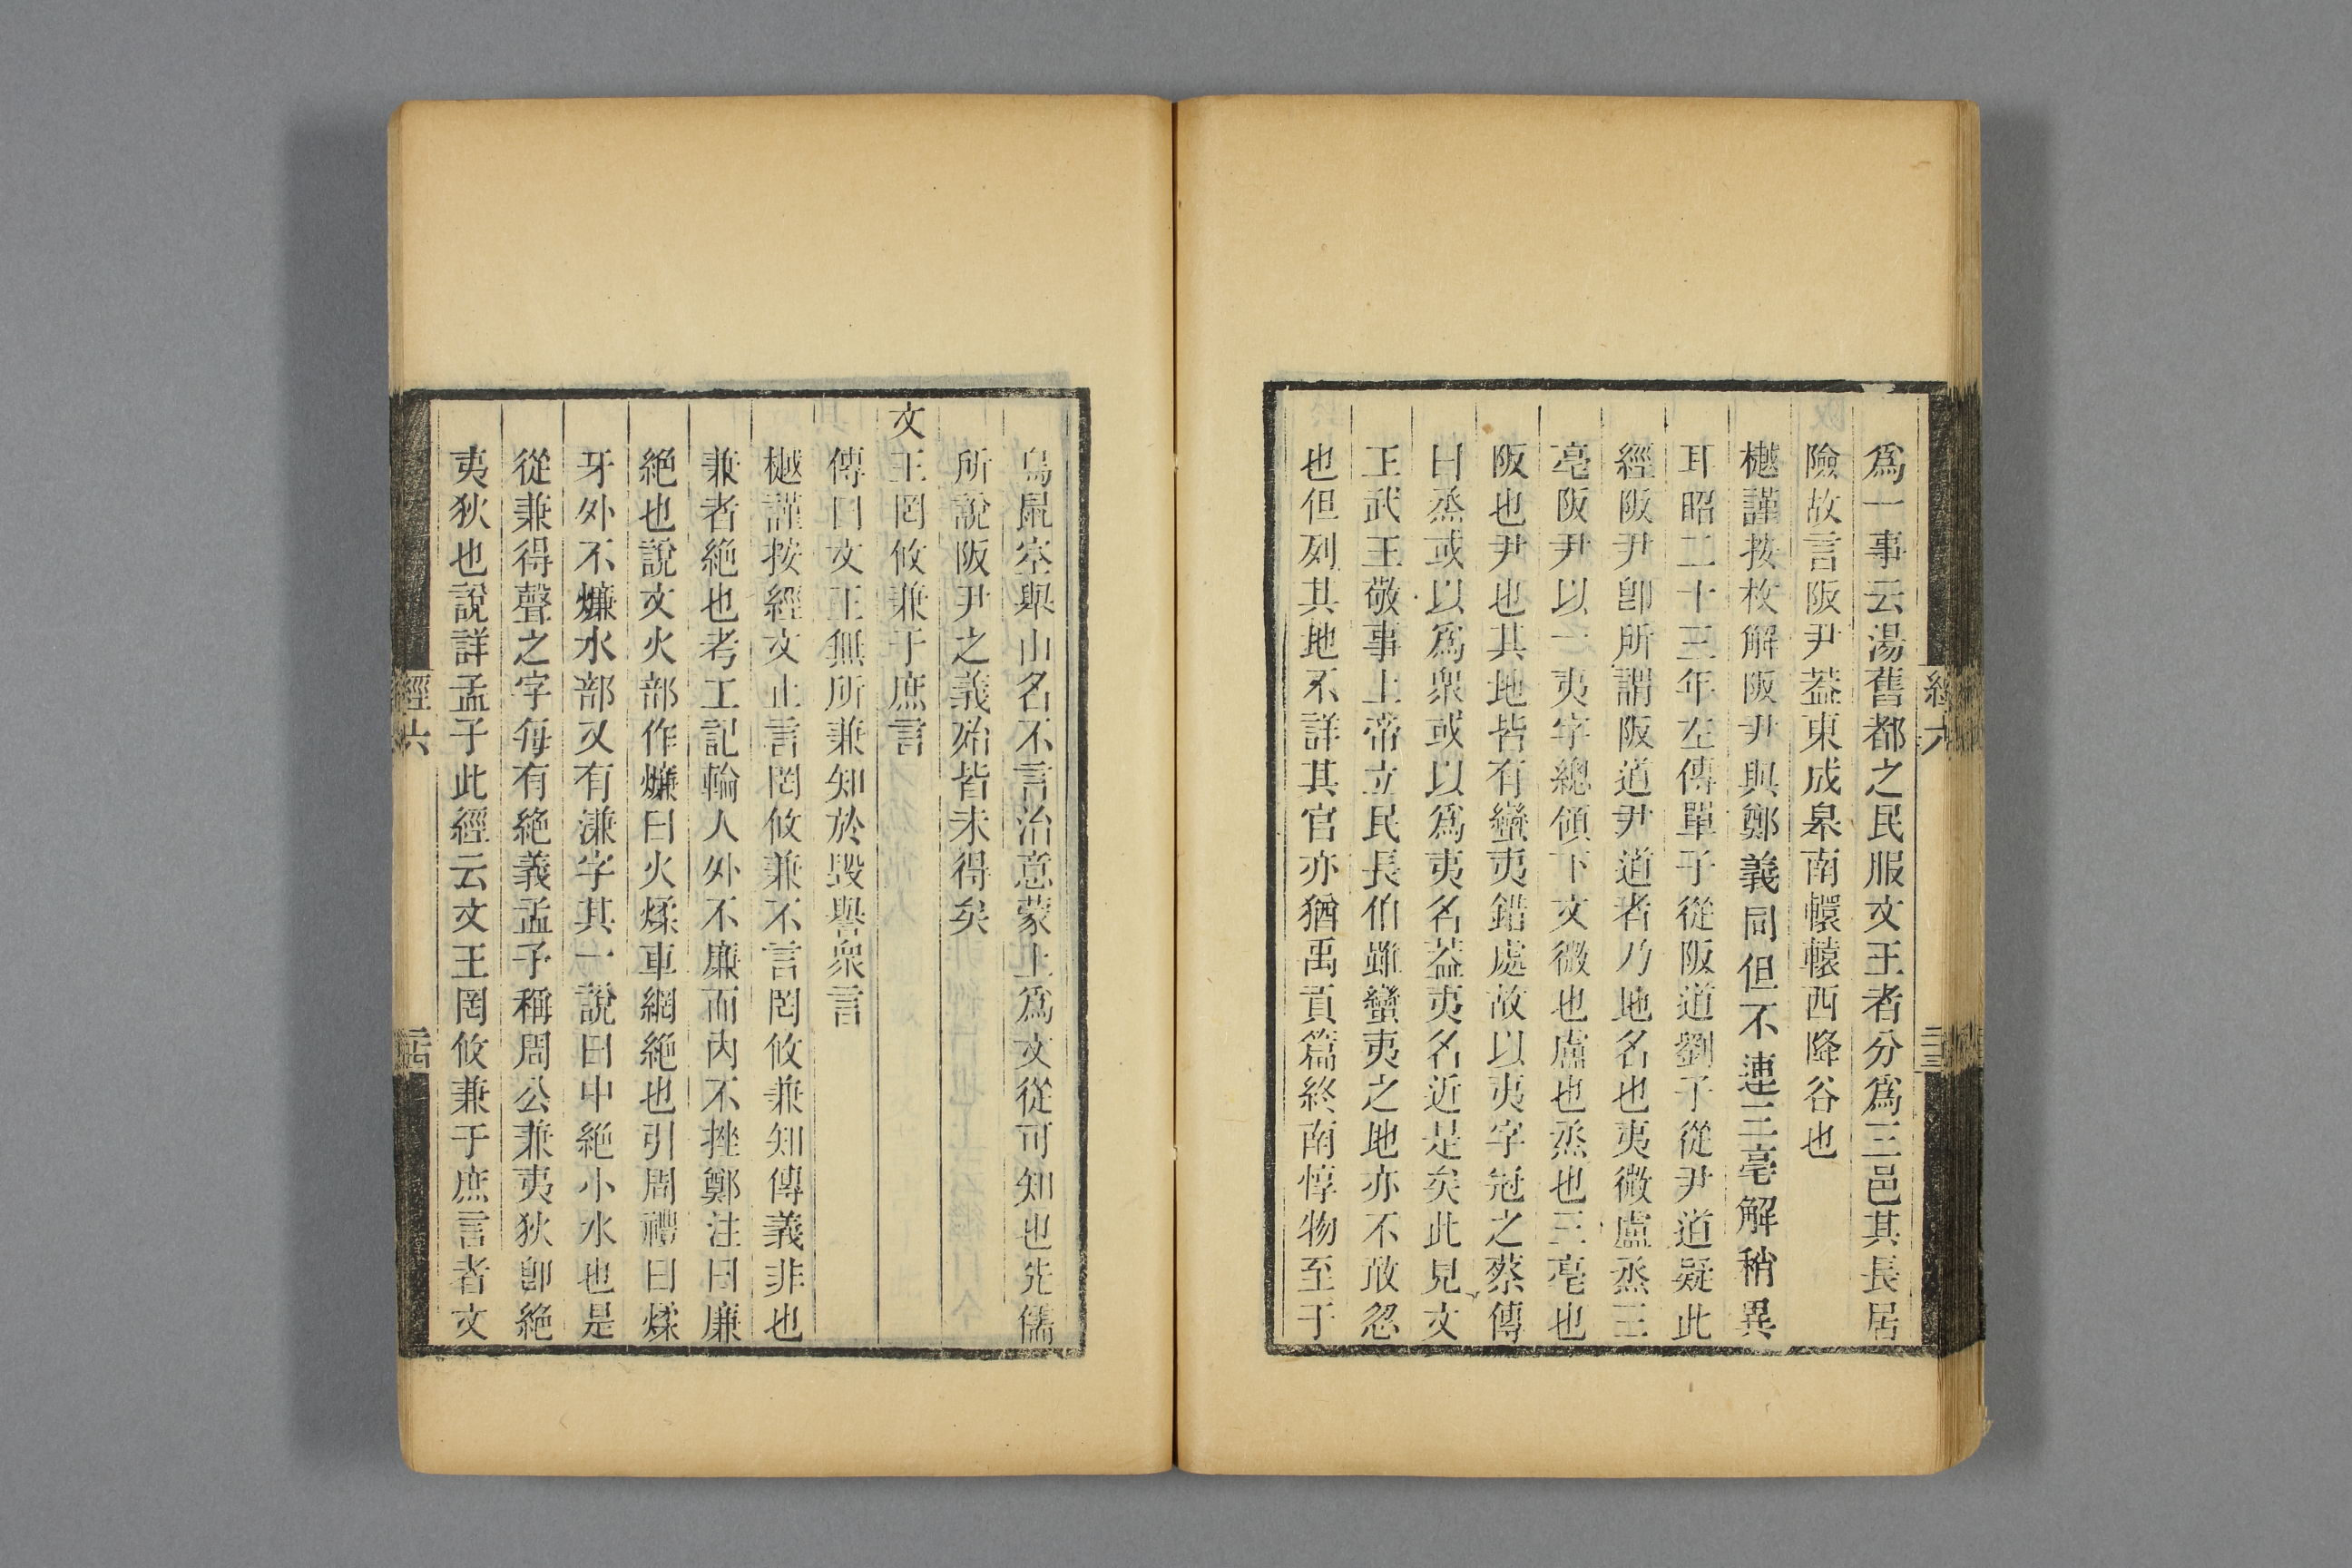 為一事云湯舊都之民服文王者分為三邑其長居
險故言阪尹葢東成皋南轘轅西降谷也
樾謹按枚解阪尹與鄭義同但不連三亳解稍異
耳昭二十三年左傳單子從阪道劉子從尹道疑此
經阪尹卽所謂阪道尹道者乃地名也夷微盧烝三
亳阪尹以一夷字總領下文微也盧也烝也三亳也
阪也尹也其地皆有蠻夷錯處故以夷字冠之蔡傳
曰烝或以爲衆或以爲夷名葢夷名近是矣此見文
王武王敬事上帝立民長伯雖蠻夷之地亦不敢忽
也但列其地不詳其官亦猶禹貢篇終南惇物至于
經六
鳥鼠空與山名不言治意蒙上爲文從可知也先儒
所說阪尹之義殆皆未得矣
文王罔攸兼于庶言
傳曰文王無所兼知於毀譽衆言
樾謹按經文止言罔攸兼不言罔攸兼知傳義非也
兼者絶也考工記輪人外不廉而內不挫鄭注曰廉
絶也說文火部作熑曰火煣車網絶也引周禮曰煣
牙外不熑水部又有溓字其一說曰中絶小水也是
從兼得聲之字每有絶義孟子稱周公兼夷狄卽絶
夷狄也說詳孟子此經云文王罔攸兼于庶言者文
經六